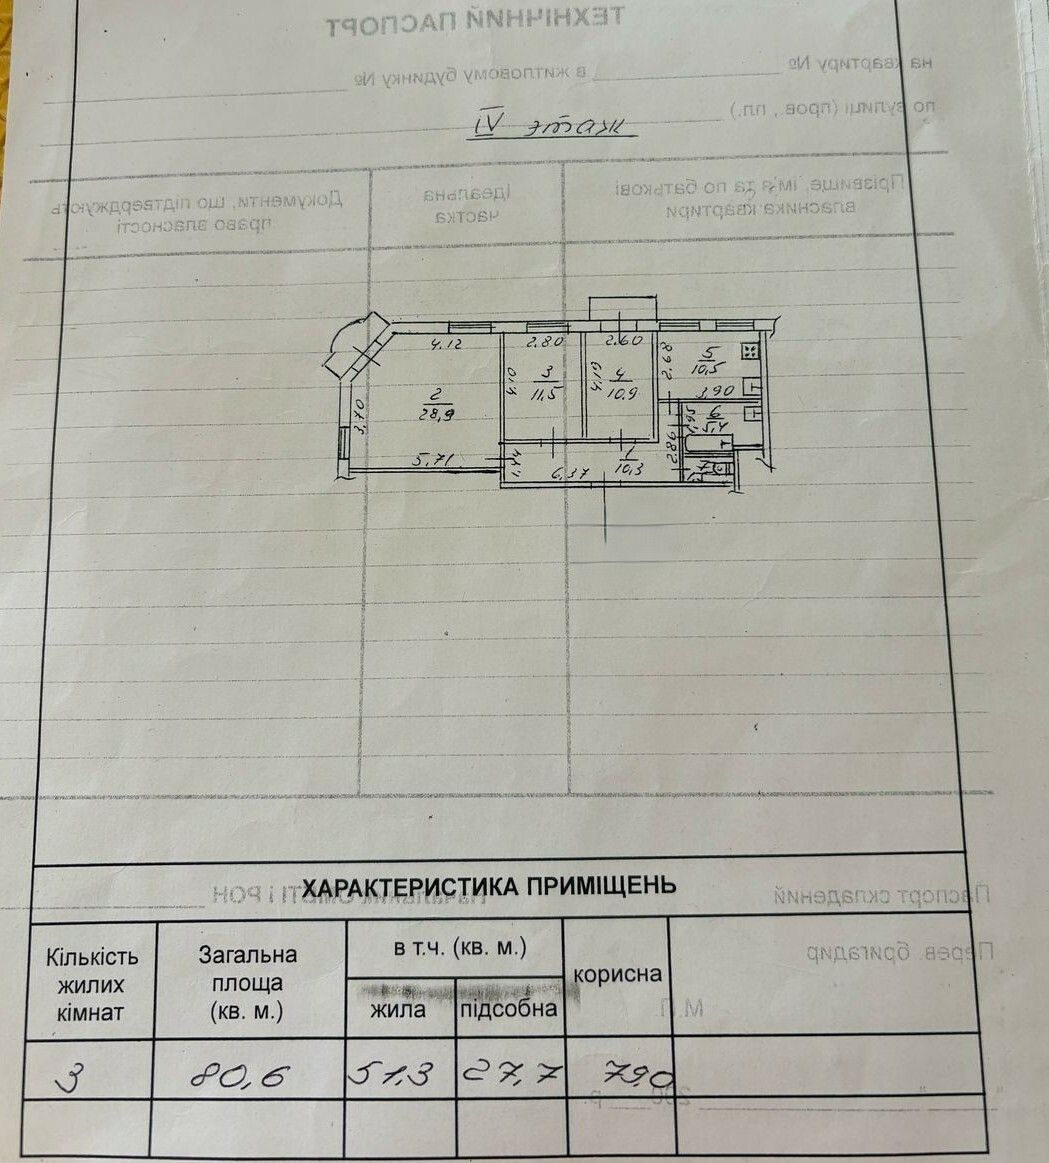 ТЕХНІЧНИЙ ПАСПОРТ
на квартиру № в житловому будинку №
по вулиці (пров., пл.)
IV этаж
Прізвище, ім'я та по батькові власника квартири
Ідеальна частка
Документи, що підтверджують право власності
4,12
2.80
2.60
2,68
5
10,5
3,90
4,10
3
11,5
4,19
4
10,9
2
28,9
3,70
5,71
1,95
6
5,4
2,86
1,44
6,37
1
10,3
7
Начальник
і РОН
ХАРАКТЕРИСТИКА ПРИМІЩЕНЬ
Паспорт складений
Перев. бригадир
М.П.
Кількість жилих кімнат
Загальна площа (кв. м.)
в т.ч. (кв. м.)
жила
підсобна
корисна
3
80,6
51,3
27,7
79,0
200 р.